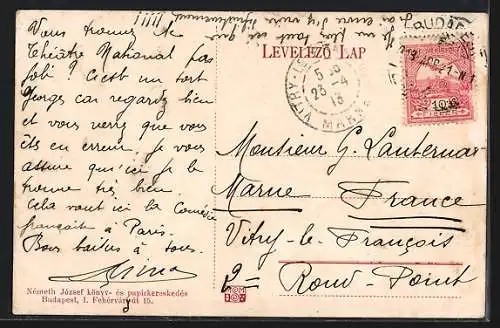 LEVELEZŐ LAP
Vous trouvez le
Théâtre National pas
joli ? C'est un tort
Georges car regardez bien
et vous verrez que vous
êtes en erreur, je vous
assure qu'ici je le
trouve très bien.
Cela vaut ici la Comédie
française à Paris.
à tous.
BUDAP
VITRY-
5
23-4
13
MARNE
10
Monsieur G. Lanternar
Marne France
Vitry-le-François
9 - Rond-Point
Németh József könyv- és papirkereskedés
Budapest, I. Fehérvári út 15.